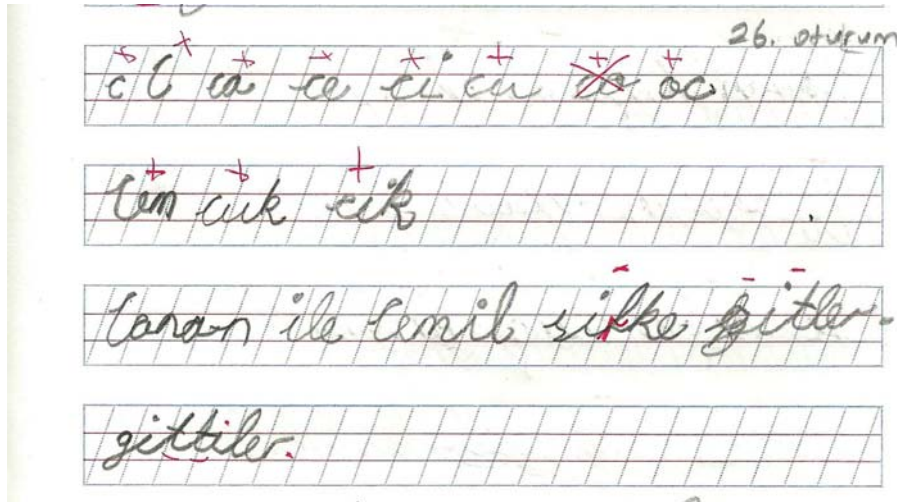 26. oturum
c C ca ce ci cu oc
Cem cuk cik
Canan ile Cemil gitler.
gittiler.